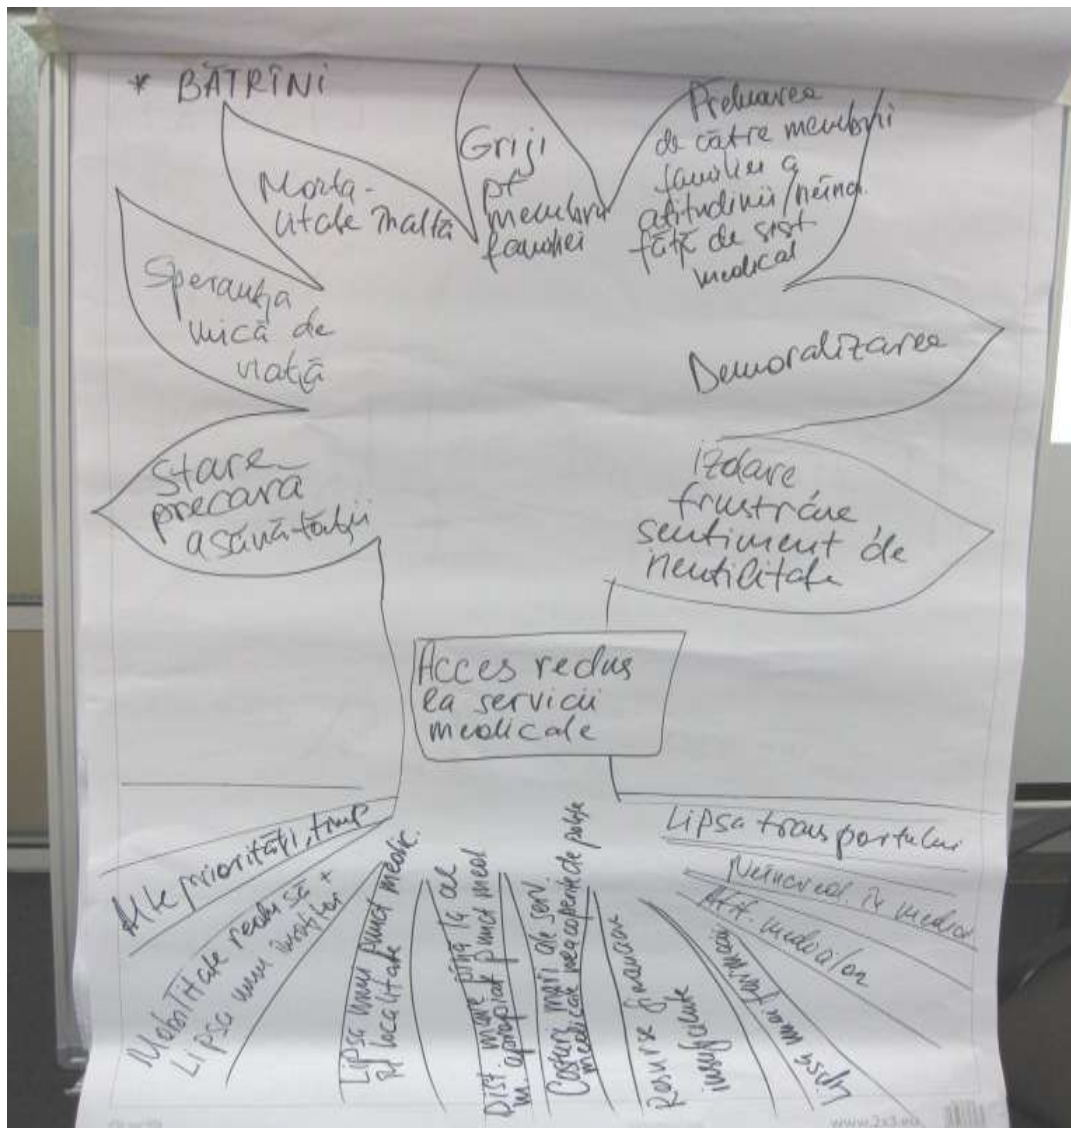 * BĂTRÎNI
Morta-
litate înaltă
Griji
pt
membrii
familiei
Preluarea
de către membrii
familiei a
atitudinii/neîncr.
față de sist
medical
Speranța
mică de
viață
Demoralizarea
Stare
precară
a sănătății
izolare
frustrare
sentiment de
neutilitate
Acces redus
la servicii
medicale
Alte priorități, timp
Mobilitate redusă +
Lipsa unui însoțitor
Lipsa unui punct medic.
pe localitate
Dist. mare pînă la cel
m. apropiat punct med
Costuri mari ale serv.
medicale neacoperite de polițe
Resurse financiare
insuficiente
Lipsa unei farmacii
Atit. medicilor
Neîncred. în medici
Lipsa transportului
www.2x3.eu